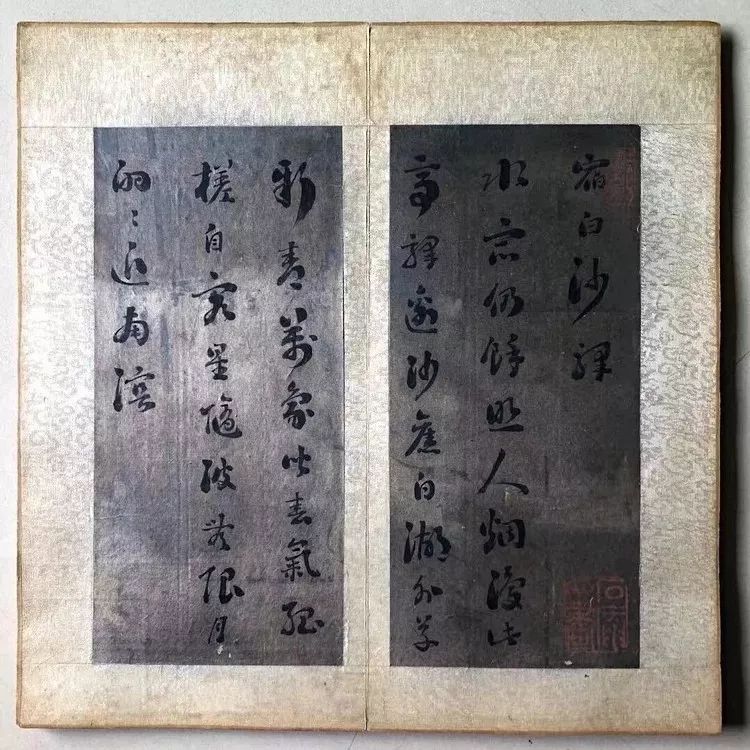 宿白沙驛
水宿仍餘照人烟復此
亭驛邊沙舊白湖外草
新青萬象皆春氣孤
槎自客星隨波無限月
的〻近南溟